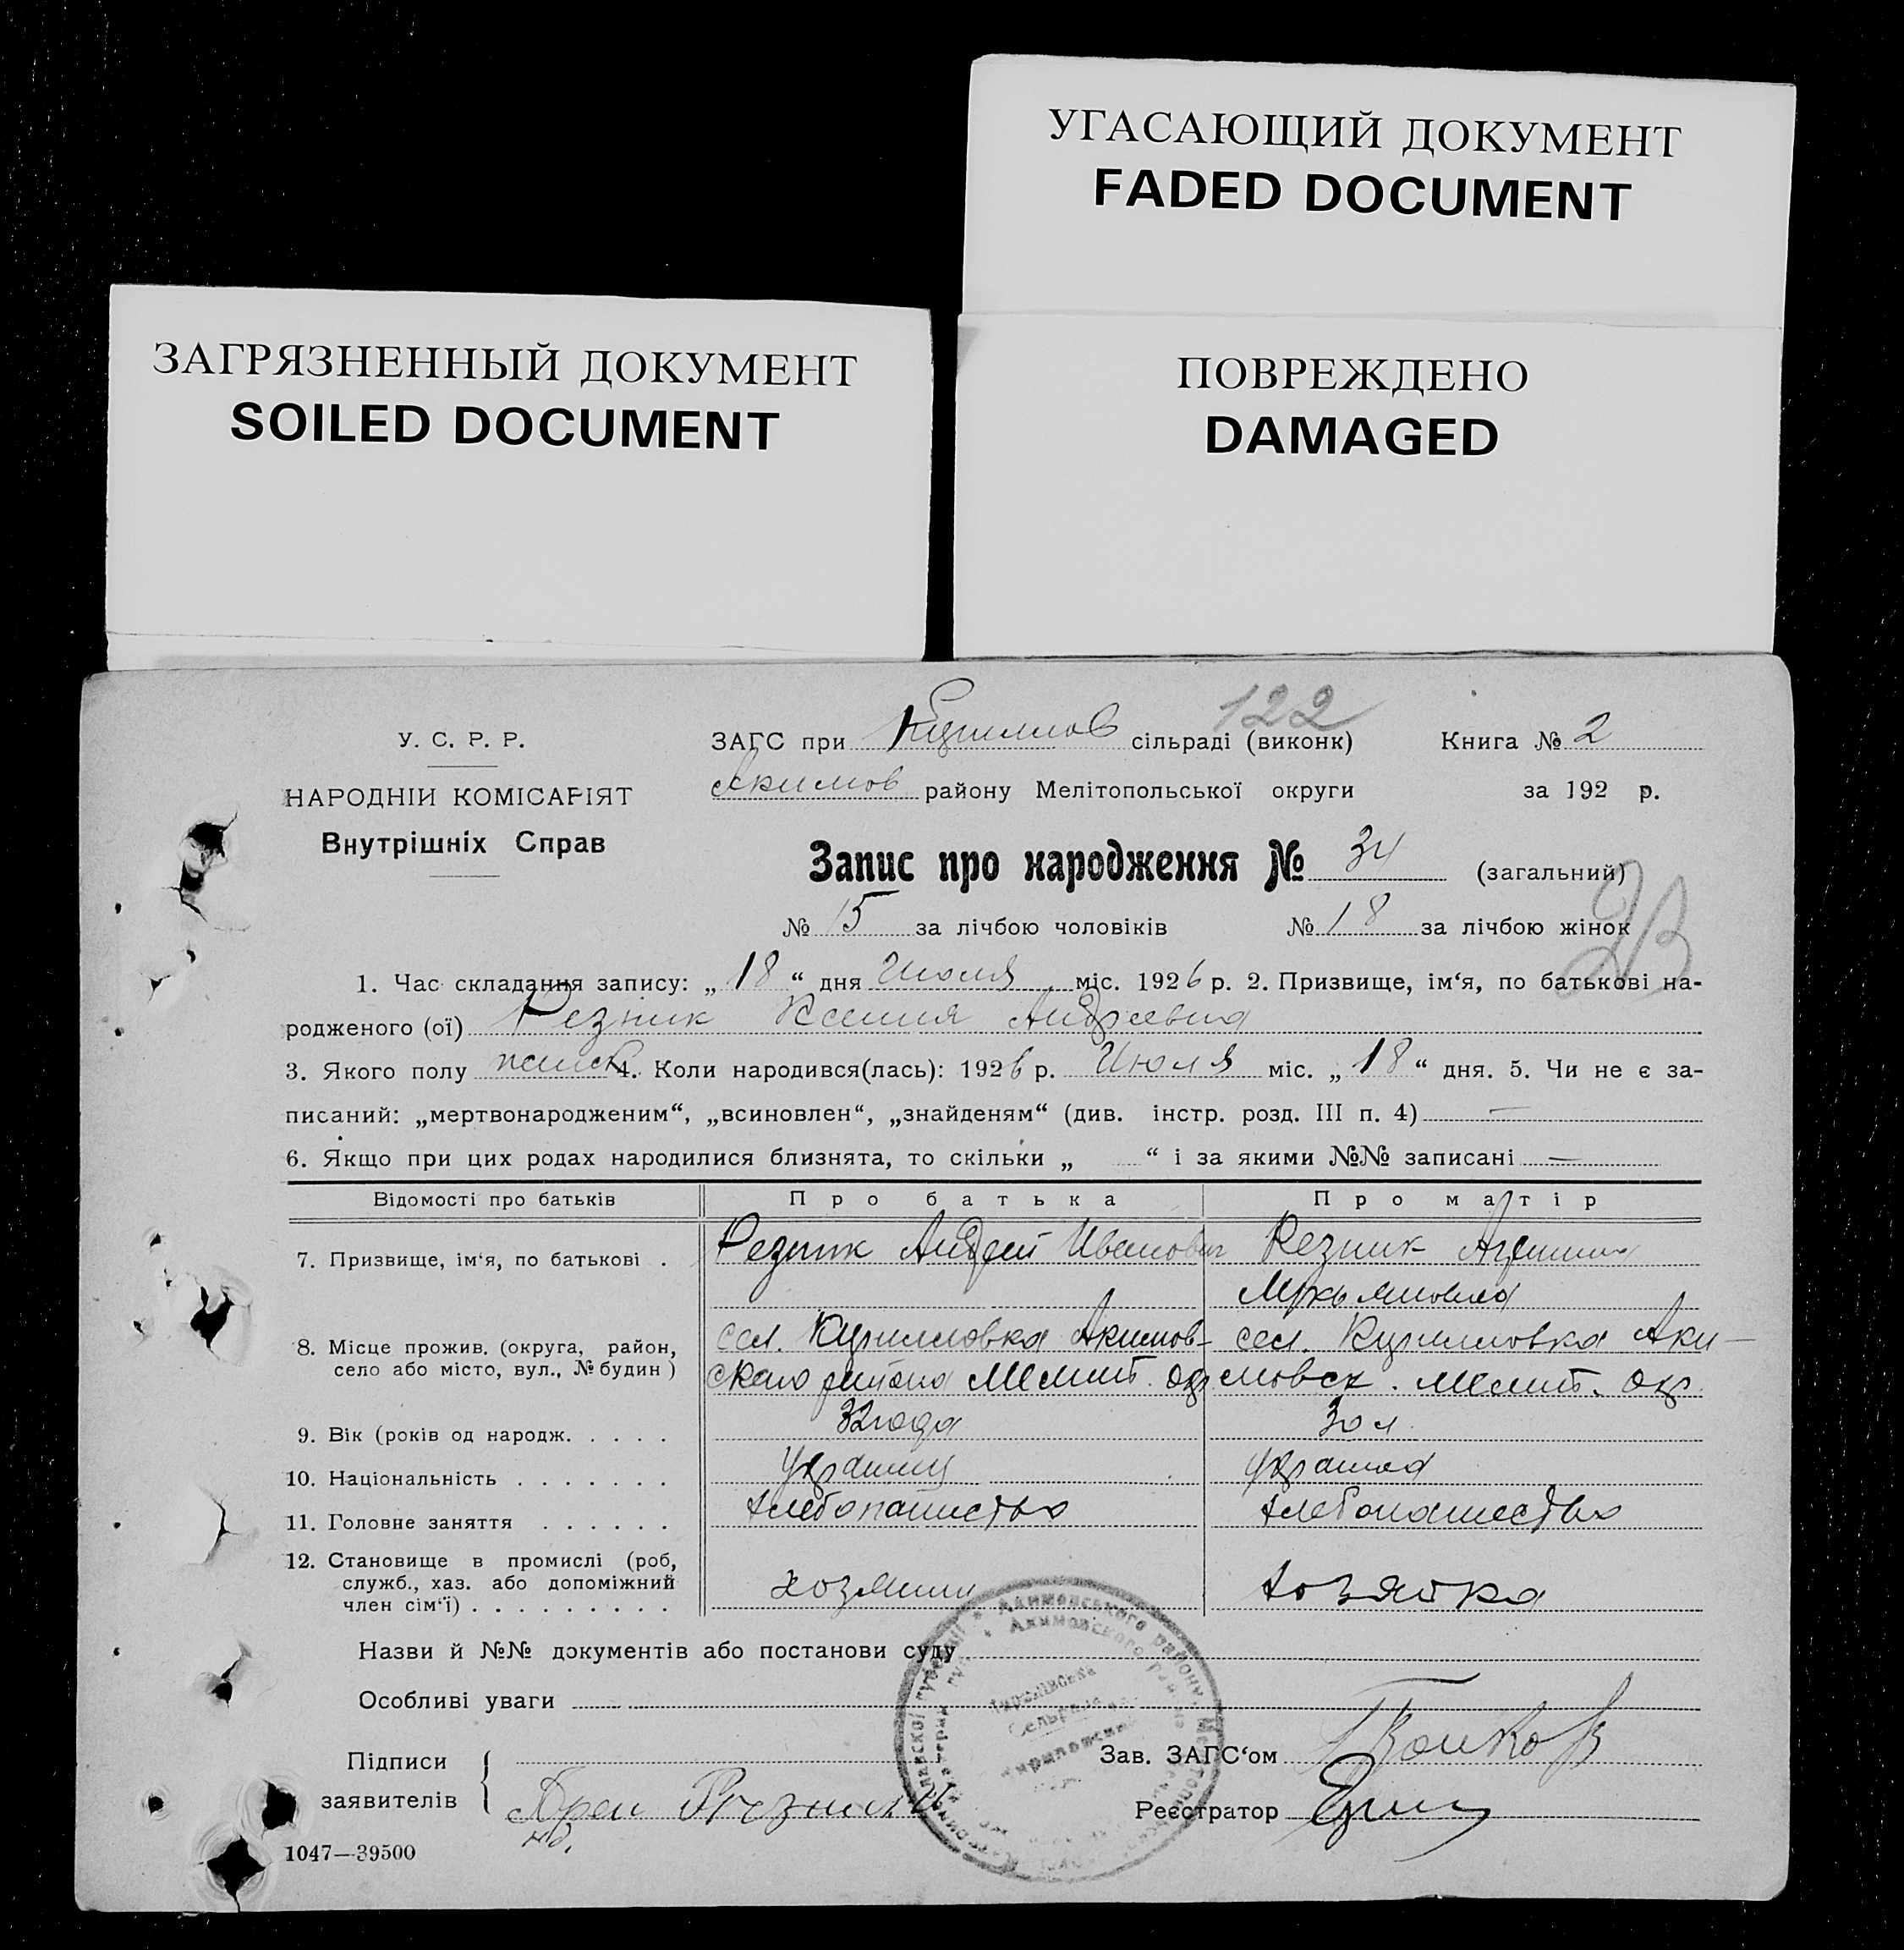 УГАСАЮЩИЙ ДОКУМЕНТ
FADED DOCUMENT
ЗАГРЯЗНЕННЫЙ ДОКУМЕНТ
SOILED DOCUMENT
ПОВРЕЖДЕНО
DAMAGED
122
У. С. Р. Р.
ЗАГС при Кирилов сільраді (виконк) Книга № 2
НАРОДНІЙ КОМІСАРІЯТ
Акимов району Мелітопольської округи за 192 р.
Внутрішніх Справ
Запис про народження № 34 (загальний)
№ 15 за лічбою чоловіків № 18 за лічбою жінок
1. Час складання запису: „ 18 “ дня Июля міс. 1926 р. 2. Призвище, ім‘я, по батькові на-
родженого (ої) Резник Ксения Андреевна
3. Якого полу женск 4. Коли народився(лась): 1926 р. Июля міс. „ 18 “ дня. 5. Чи не є за-
писаний: „мертвонародженим“, „всиновлен“, „знайденям“ (див. інстр. розд. III п. 4) —
6. Якщо при цих родах народилися близнята, то скільки „ “ і за якими №№ записані —
Відомості про батьків Про батька Про матір
7. Призвище, ім‘я, по батькові . Резник Андрей Иванович Резник
8. Місце прожив. (округа, район, село або місто, вул., № будин ) сел. Кирилловка Акимов- сел. Кирилловка Аки-
скаго района Мелит. окр мовск. Мелит. окр
9. Вік (років од народж. . . . . 32 года 30 л
10. Національність . . . . . . . украинец украинка
11. Головне заняття . . . . . . хлебопашество хлебопашество
12. Становище в промислі (роб, служб., хаз. або допоміжний член сім‘ї) . . . . . . . . . хозяин хозяйка
Назви й №№ документів або постанови суду
Особливі уваги
Підписи заявителів
Резник
Зав. ЗАГС‘ом
Реєстратор
1047—39500
Акимовського району